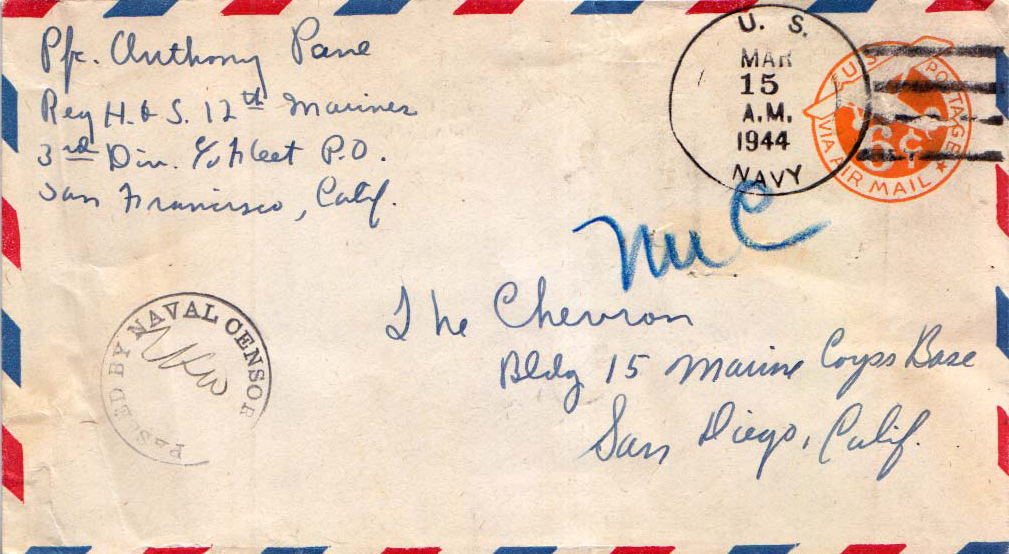 Pfc. Anthony Pane
Reg H. & S. 12th Marines
3rd Div. % Fleet P.O.
San Francisco, Calif.
U. S.
MAR
15
A.M.
1944
NAVY
U.S. POSTAGE
6¢
VIA AIR MAIL
The Chevron
Bldg 15 Marine Corps Base
San Diego, Calif.
PASSED BY NAVAL CENSOR